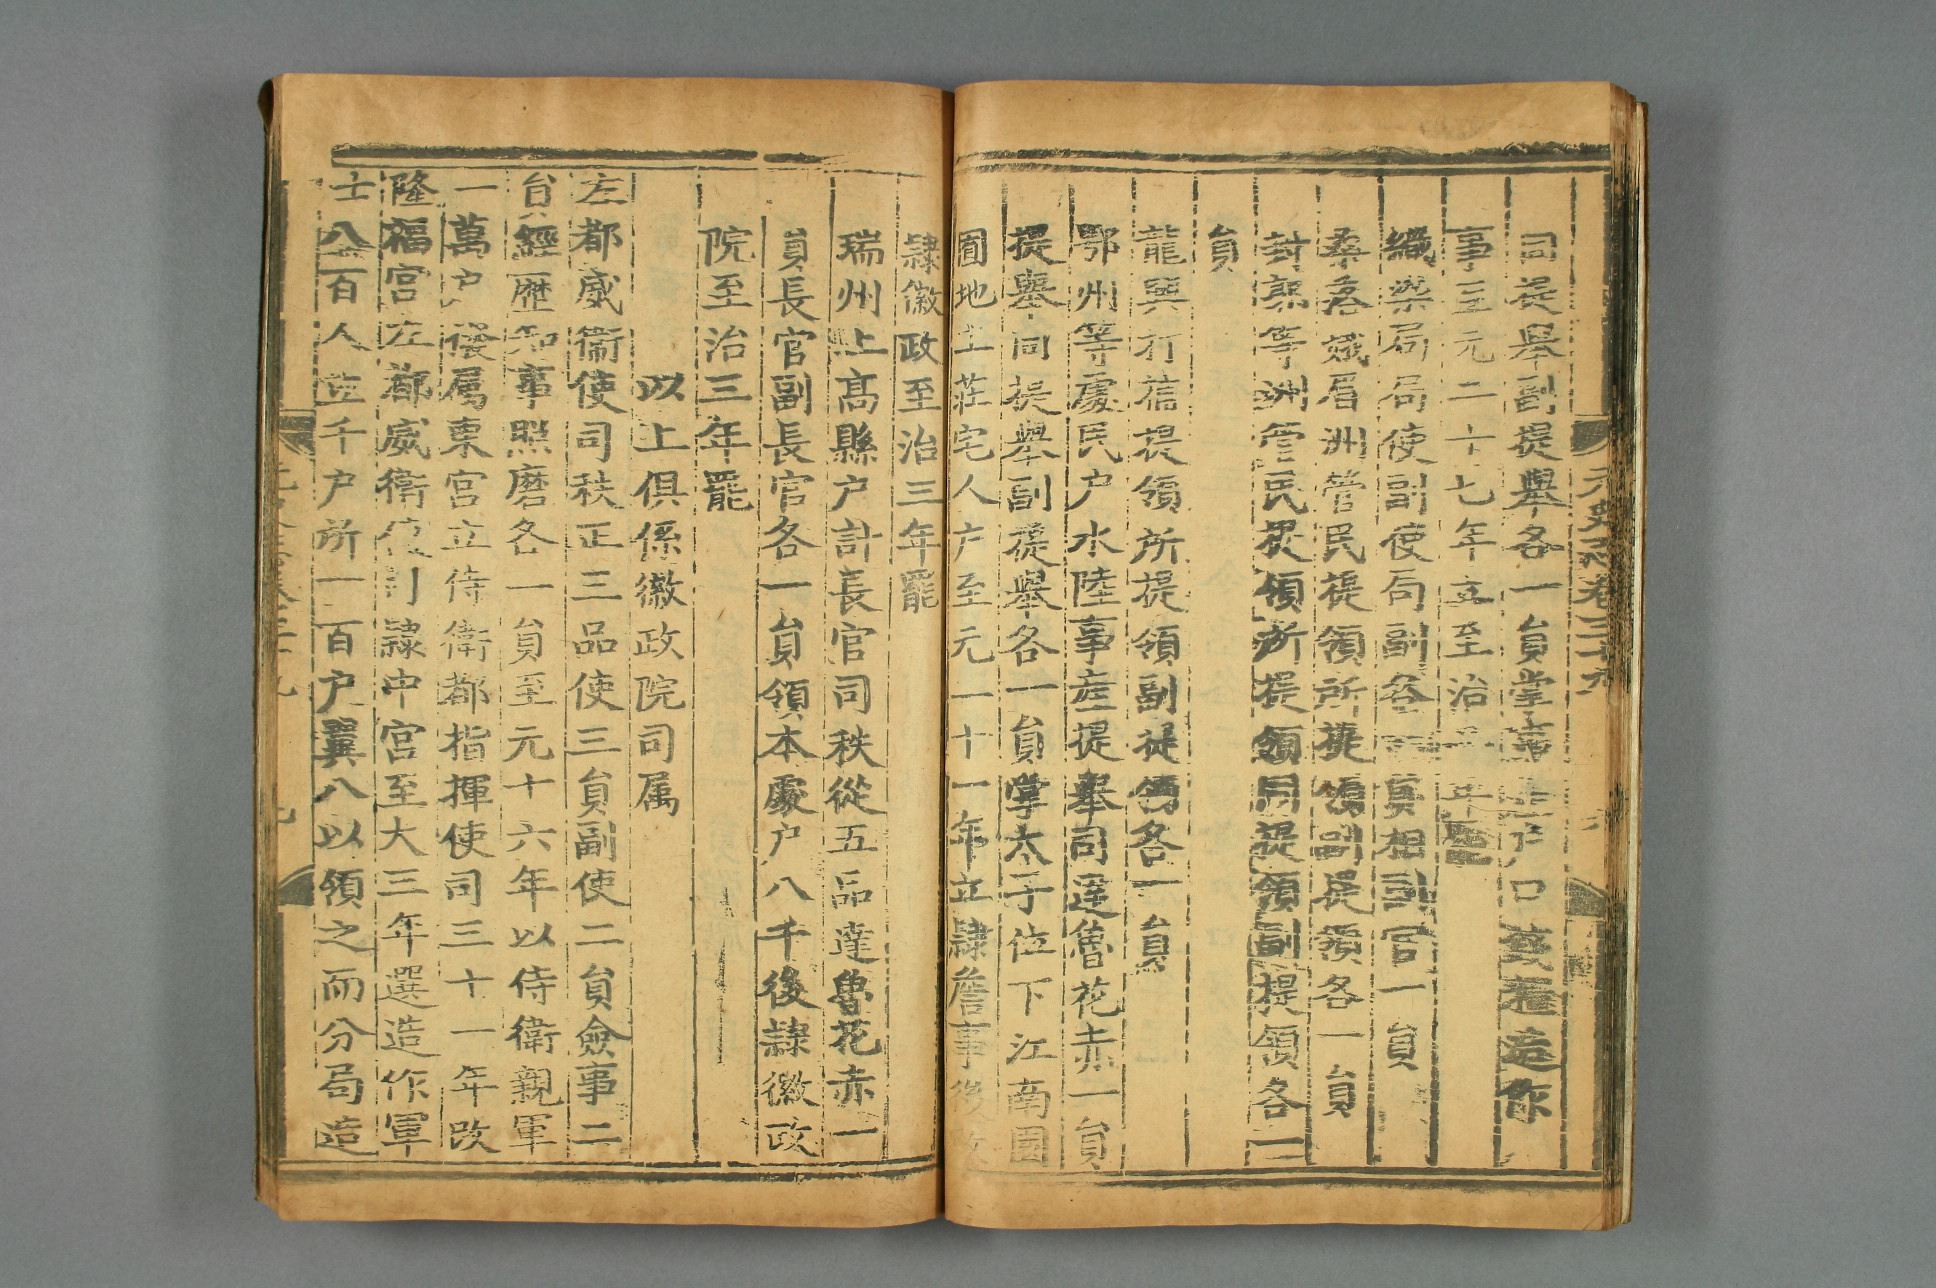 元史志卷三十九
同提舉副提舉各一員掌
事至元二十七年立至治
織染局局使副使局副各一員相副官一員
桑落娥眉洲管民提領所提領副提領各一員
封郭等洲管民提領所提領同提領副提領各一
員
龍興打捕提領所提領副提領各一員
鄂州等處民户水陸事産提舉司達魯花赤一員
提舉同提舉副提舉各一員掌太子位下江南園
囿地土莊宅人户至元二十一年立隷詹事後改
隷徽政至治三年罷
瑞州上高縣户計長官司秩從五品達魯花赤一
員長官副長官各一員領本處户八千後隷徽政
院至治三年罷
以上俱係徽政院司属
左都威衛使司秩正三品使三員副使二員僉事二
員經歷知事照磨各一員至元十六年以侍衛親軍
一萬户撥属東宮立侍衛都指揮使司三十一年改
隆福宮左都威衛使司隷中宮至大三年選造作軍
士八百人立千户所一百户翼八以領之而分局造